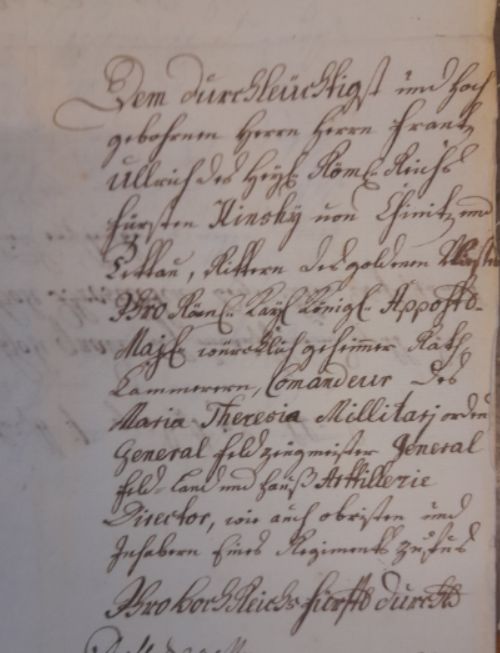 Dem durchleüchtigst und Hoch
gebohrnen Herrn Herrn Frantz
Ullrich des Heyl. Röml. Reichs
Fürsten Kinsky von Chinitz und
Tettau, Rittern des goldenen
Ihro Röml. Kayl. Königl. Apposto-
Mayl. würcklich geheimer Rath,
Cammerern, Comandeur des
Maria Theresia Millitarj orden
General Feldzeugmeister General
Feld- Land und Hauß Arttillerie
Director, wie auch obristen und
Inhabern Eines Regiments zu fus
Ihro Hoch Reichs fürstl durchl